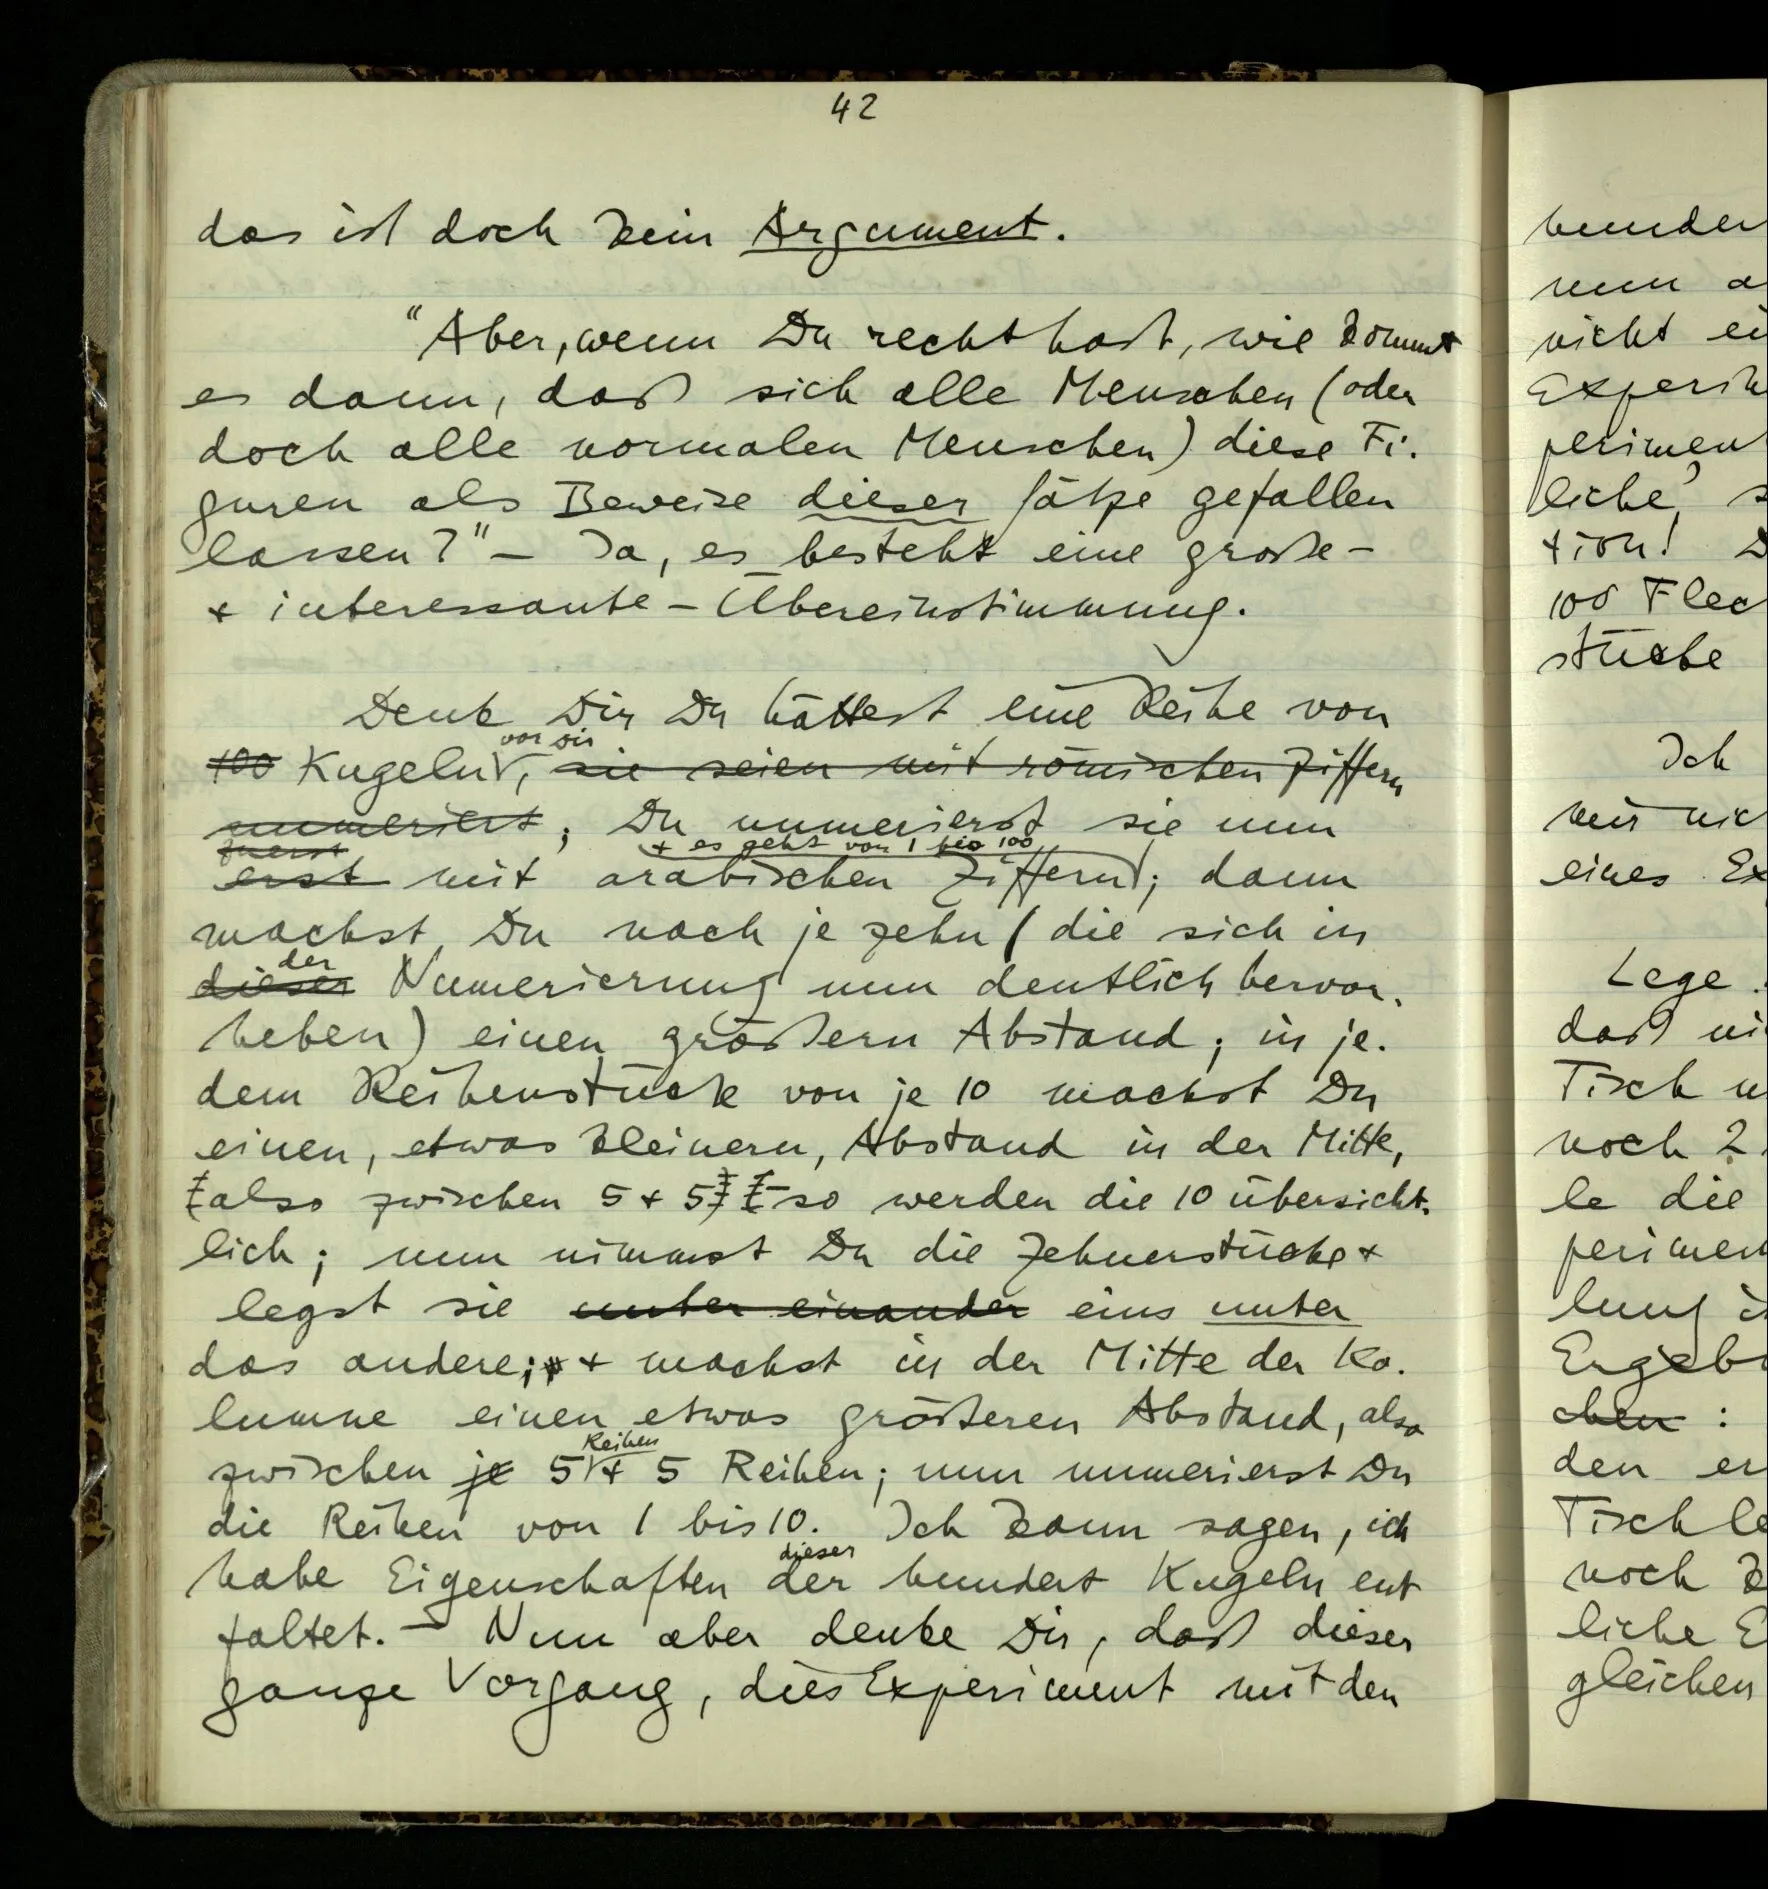 42
das ist doch kein Argument.
"Aber, wenn Du recht hast, wie kommt
es dann, daß sich alle Menschen (oder
doch alle normalen Menschen) diese Fi-
guren als Beweise dieser Sätze gefallen
lassen?" – Ja, es besteht eine große –
+ interessante – Übereinstimmung.
Denk Dir Du hättest eine Reihe von
vor Dir
100 Kugeln, sie seien mit römischen Ziffern
numeriert; Du numerierst sie nun
zuerst + es geht von 1 bis 100
erst mit arabischen Ziffern; dann
machst Du nach je zehn (die sich in
der
dieser Numerierung nun deutlich hervor-
heben) einen größern Abstand; in je-
dem Reihenstück von je 10 machst Du
einen, etwas kleinern, Abstand in der Mitte,
also zwischen 5 + 5 – so werden die 10 übersicht-
lich; nun nimmst Du die Zehnerstücke +
legst sie unter einander eins unter
das andere; + machst in der Mitte der Ko-
lumne einen etwas größeren Abstand, also
Reihen
zwischen je 5 + 5 Reihen; nun numerierst Du
die Reihen von 1 bis 10. Ich kann sagen, ich
dieser
habe Eigenschaften der hundert Kugeln ent
faltet. – Nun aber denke Dir, daß dieser
ganze Vorgang, dies Experiment mit den
nun a
nicht ei
liche, s
tion! D
100 Flec
stücke
Ich
mir nic
eines Ex
Lege
daß ni
Tisch
noch 2
le die
perimen
Ergeb
chen :
den er
Tischle
noch k
liche E
gleichen